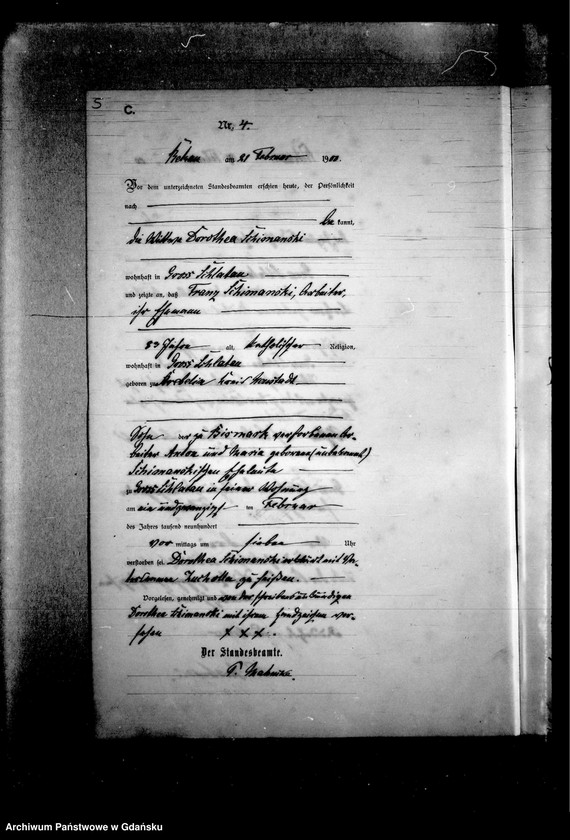 5
C.
Nr. 4.
am 21 Februar 1900.
Vor dem unterzeichneten Standesbeamten erschien heute, der Persönlichkeit
nach
be kannt,
die Wittwe Dorothea Schimanski
wohnhaft in Gross Schlatau
und zeigte an, daß Franz Schimanski, Arbeiter,
ihr Ehemann
Jahre alt, katholischer Religion,
wohnhaft in Gross Schlatau
geboren zu Kreis
Sohn der zu Bismark verstorbenen Ar-
beiter Anton und Maria geborene (unbekannt)
Schimanskischen Eheleute
zu Gross Schlatau in seiner Wohnung
am ein und zwanzigst ten Februar
des Jahres tausend neunhundert
vor mittags um sieben Uhr
verstorben sei. Dorothea Schimanski erklärt mit Vor-
zu heißen.
Vorgelesen, genehmigt und von der schreibensunkundigen
Dorothea Schimanski mit ihrem Handzeichen ver-
sehen + + + .
Der Standesbeamte.
Archiwum Państwowe w Gdańsku